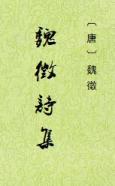 〔唐〕魏徵
魏徵詩集